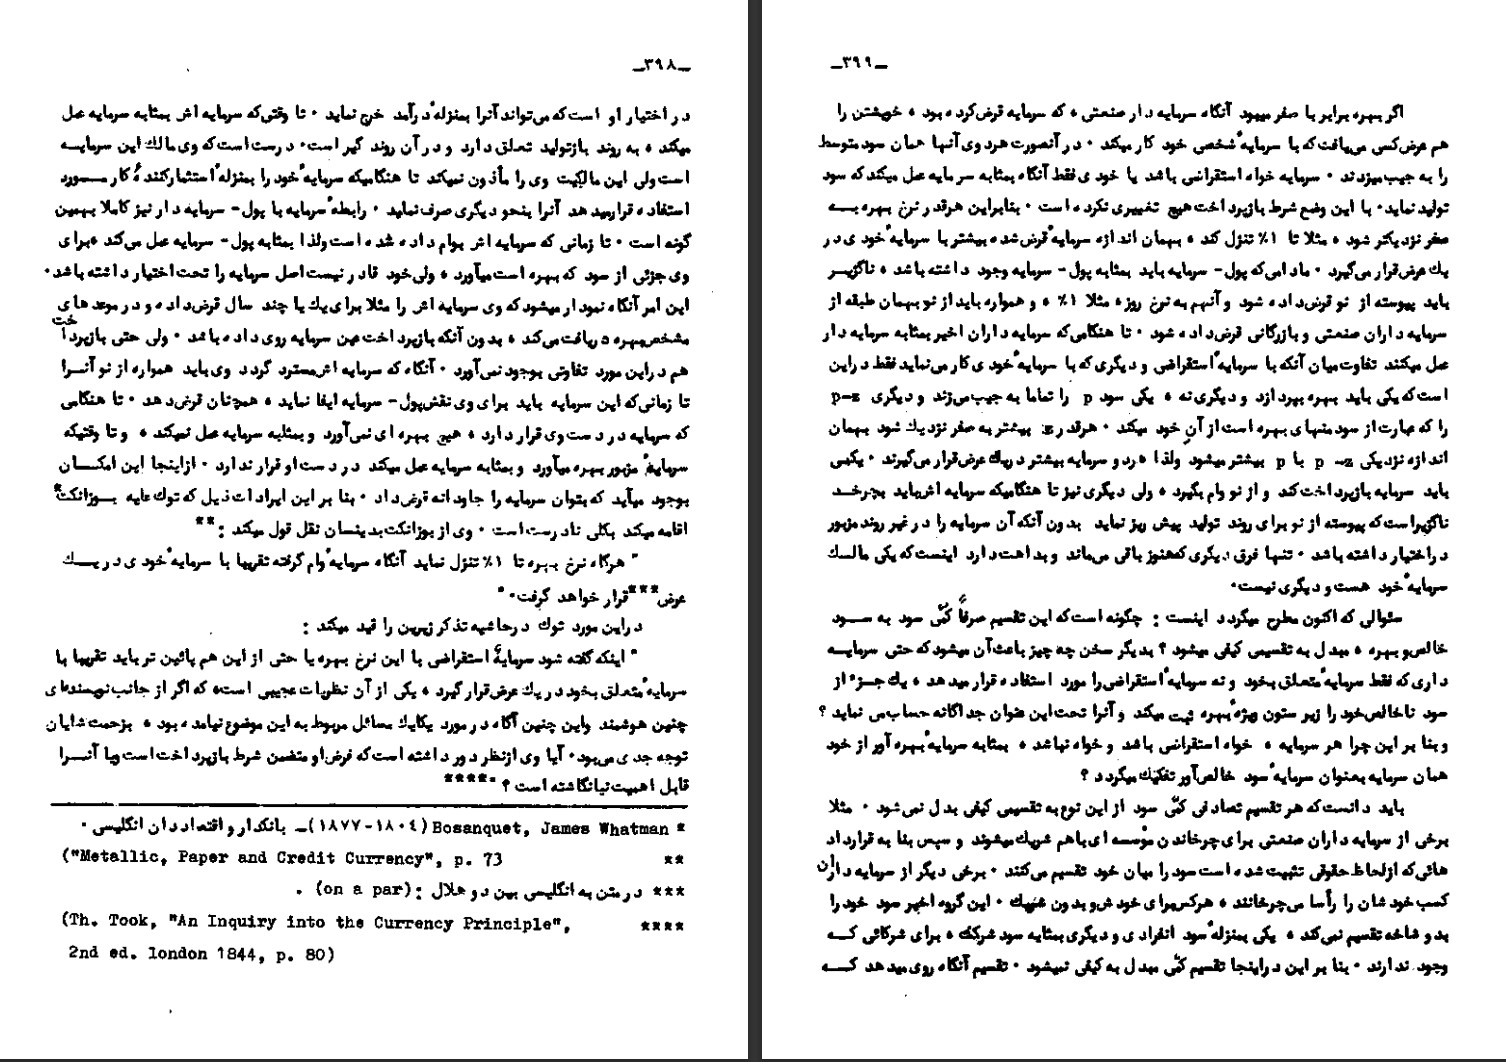 ـ٣٩٨ـ
در اختیار او است که می‌تواند آنرا بمنزلهٔ درآمد خرج نماید ۰ تا وقتی‌که سرمایه اش بمثابه سرمایه عمل
میکند ، به روند بازتولید تعلق دارد و در آن روند گیر است۰ درست است که وی مالک این سرمایـــه
است ولی این مالکیت وی را مأذون نمیکند تا هنگامیکه سرمایهٔ خود را بمنزلهٔ استثمارکنندهٔ کار مـــورد
استفاده قرارمیدهد آنرا بنحو دیگری صرف نماید ۰ رابطهٔ سرمایه با پول- سرمایه دار نیز کاملا بهمین
گونه است ۰ تا زمانی که سرمایه اش بوام داده شده است ولذا بمثابه پول- سرمایه عمل می‌کند ،برای
وی جزئی از سود که بهره است میآورد ، ولی خود قادر نیست اصل سرمایه را تحت اختیار داشته باشد۰
این امر آنگاه نمودار میشود که وی سرمایه اش را مثلا برای یک یا چند سال قرض داده ، و در موعد های
مشخص بهره دریافت می‌کند ، بدون آنکه بازپرداخت عین سرمایه روی داده باشد ۰ ولی حتی بازپرداخت
هم در این مورد تفاوتی بوجود نمی‌آورد ۰ آنگاه که سرمایه اش مسترد گردد وی باید همواره از نو آنـــرا
تا زمانی که این سرمایه باید برای وی نقش پول- سرمایه ایفا نماید ، همچنان قرض دهد ۰ تا هنگامی
که سرمایه در دست وی قرار دارد ، هیچ بهره ای نمی‌آورد و بمثابه سرمایه عمل نمیکند ، و تا وقتیکه
سرمایهٔ مزبور بهره میآورد و بمثابه سرمایه عمل میکند در دست او قرار ندارد ۰ ازاینجا این امکـــان
بوجود میآید که بتوان سرمایه را جاودانه قرض داد ۰ بنا بر این ایرادات ذیل که توک علیه بـــوزانکت*
اقامه میکند بکلی نادرست است ۰ وی از بوزانکت بدینسان نقل قول میکند : **
" هرگاه نرخ بهره تا ١٪ تنزل نماید آنگاه سرمایهٔ وام گرفته تقریبا با سرمایهٔ خودی در یـــک
عرض***قرار خواهد گرفت۰ "
در این مورد توک در حاشیه تذکر زیرین را قید میکند :
" اینکه گفته شود سرمایهٔ استقراضی با این نرخ بهره یا حتی از این هم پائین تر باید تقریبا با
سرمایهٔ متعلق بخود در یک عرض قرار گیرد ، یکی از آن نظریات عجیبی است، که اگر از جانب نویسنده‌ای
چنین هوشمند واین چنین آگاه در مورد یکایک مسائل مربوط به این موضوع نیامده بود ، بزحمت شایان
توجه جدی می‌بود۰ آیا وی ازنظر دور داشته است که فرض او متضمن شرط بازپرداخت است ویا آنـــرا
قابل اهمیت نیانگاشته است ؟ ۰****
* Bosanquet, James Whatman (١٨٠٤-١٨٧٧)ـ بانکدار و اقتصاددان انگلیسی ۰
** ("Metallic, Paper and Credit Currency", p. 73
*** در متن به انگلیسی بین دو هلال : (on a par) .
**** (Th. Took, "An Inquiry into the Currency Principle",
2nd ed. london 1844, p. 80)
ـ٣٩٩ـ
اگر بهره برابر با صفر میبود آنگاه سرمایه دار صنعتی ، که سرمایه قرض کرده بود ، خویشتن را
هم عرض کسی می‌یافت که با سرمایهٔ شخصی خود کار میکند ۰ در آنصورت هردوی آنها همان سود متوسط
را به جیب میزدند ۰ سرمایه خواه استقراضی باشد یا خودی فقط آنگاه بمثابه سرمایه عمل میکند که سود
تولید نماید۰ با این وضع شرط بازپرداخت هیچ تغییری نکرده است ۰ بنابراین هرقدر نرخ بهره بـــه
صفر نزدیکتر شود ، مثلا تا ١٪ تنزل کند ، بهمان اندازه سرمایهٔ قرض شده بیشتر با سرمایهٔ خودی در
یک عرض قرار می‌گیرد ۰ مادامی که پول- سرمایه باید بمثابه پول- سرمایه وجود داشته باشد ، ناگزیـــر
باید پیوسته از نو قرض داده شود و آنهم به نرخ روز، مثلا ١٪ ، و همواره باید از نو بهمان طبقه از
سرمایه داران صنعتی و بازرگانی قرض داده شود ۰ تا هنگامی که سرمایه داران اخیر بمثابه سرمایه دار
عمل میکنند تفاوت میان آنکه با سرمایهٔ استقراضی و دیگری که با سرمایهٔ خودی کار می‌نماید فقط در این
است که یکی باید بهره بپردازد و دیگری نه ، یکی سود p را تماما به جیب می‌زند و دیگری p-z
را که عبارت از سود منهای بهره است از آن خود میکند ۰ هرقدر z بیشتر به صفر نزدیک شود بهمان
اندازه نزدیکی p -z با p بیشتر میشود ولذا هردو سرمایه بیشتر در یک عرض قرار می‌گیرند ۰ یکی
باید سرمایه بازپرداخت کند و از نو وام بگیرد ، ولی دیگری نیز تا هنگامیکه سرمایه اش باید بچرخـــد
ناگزیر است که پیوسته از نو برای روند تولید پیش ریز نماید بدون آنکه آن سرمایه را در غیر روند مزبور
در اختیار داشته باشد ۰ تنها فرق دیگری که هنوز باقی می‌ماند و بداهت دارد اینست که یکی مالـــک
سرمایهٔ خود هست و دیگری نیست۰
سئوالی که اکنون مطرح میگردد اینست : چگونه است که این تقسیم صرفاً کمّی سود به ســـود
خالص و بهره ، مبدل به تقسیمی کیفی میشود ؟ بدیگر سخن چه چیز باعث آن میشود که حتی سرمایـــه
داری که فقط سرمایهٔ متعلق بخود و نه سرمایهٔ استقراضی را مورد استفاده قرار میدهد ، یک جـــزء از
سود ناخالص خود را زیر ستون ویژهٔ بهره ثبت میکند و آنرا تحت این عنوان جداگانه حساب می نماید ؟
و بنا بر این چرا هر سرمایه ، خواه استقراضی باشد و خواه نباشد ، بمثابه سرمایهٔ بهره آور از خود
همان سرمایه بعنوان سرمایهٔ سود خالص آور تفکیک میگردد ؟
باید دانست که هر تقسیم تصادفی کمّی سود از این نوع به تقسیمی کیفی بدل نمی‌شود ۰ مثلا
برخی از سرمایه داران صنعتی برای چرخاندن مؤسسه ای باهم شریک میشوند و سپس بنا به قرارداد
هائی که ازلحاظ حقوقی تثبیت شده است سود را میان خود تقسیم می‌کنند ۰ برخی دیگر از سرمایه داران
کسب خودشان را رأسا می‌چرخانند ، هرکس برای خودش و بدون شریک ۰ این گروه اخیر سود خود را
بدو شاخه تقسیم نمی‌کند ، یکی بمنزلهٔ سود انفرادی و دیگری بمثابه سود شرکت ، برای شرکائی کـــه
وجود ندارند ۰ بنا بر این در اینجا تقسیم کمّی مبدل به کیفی نمیشود ۰ تقسیم آنگاه روی میدهد کـــه